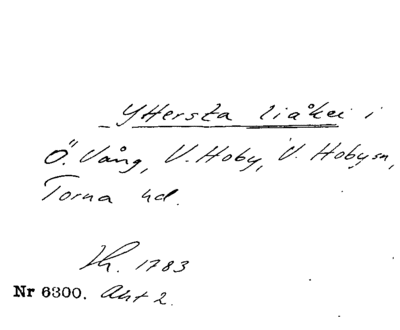 Yttersta liåker i
Ö. Vång, V. Hoby, V. Hoby sn,
Torna hd.
Lh. 1783
Nr 6300. Akt 2.